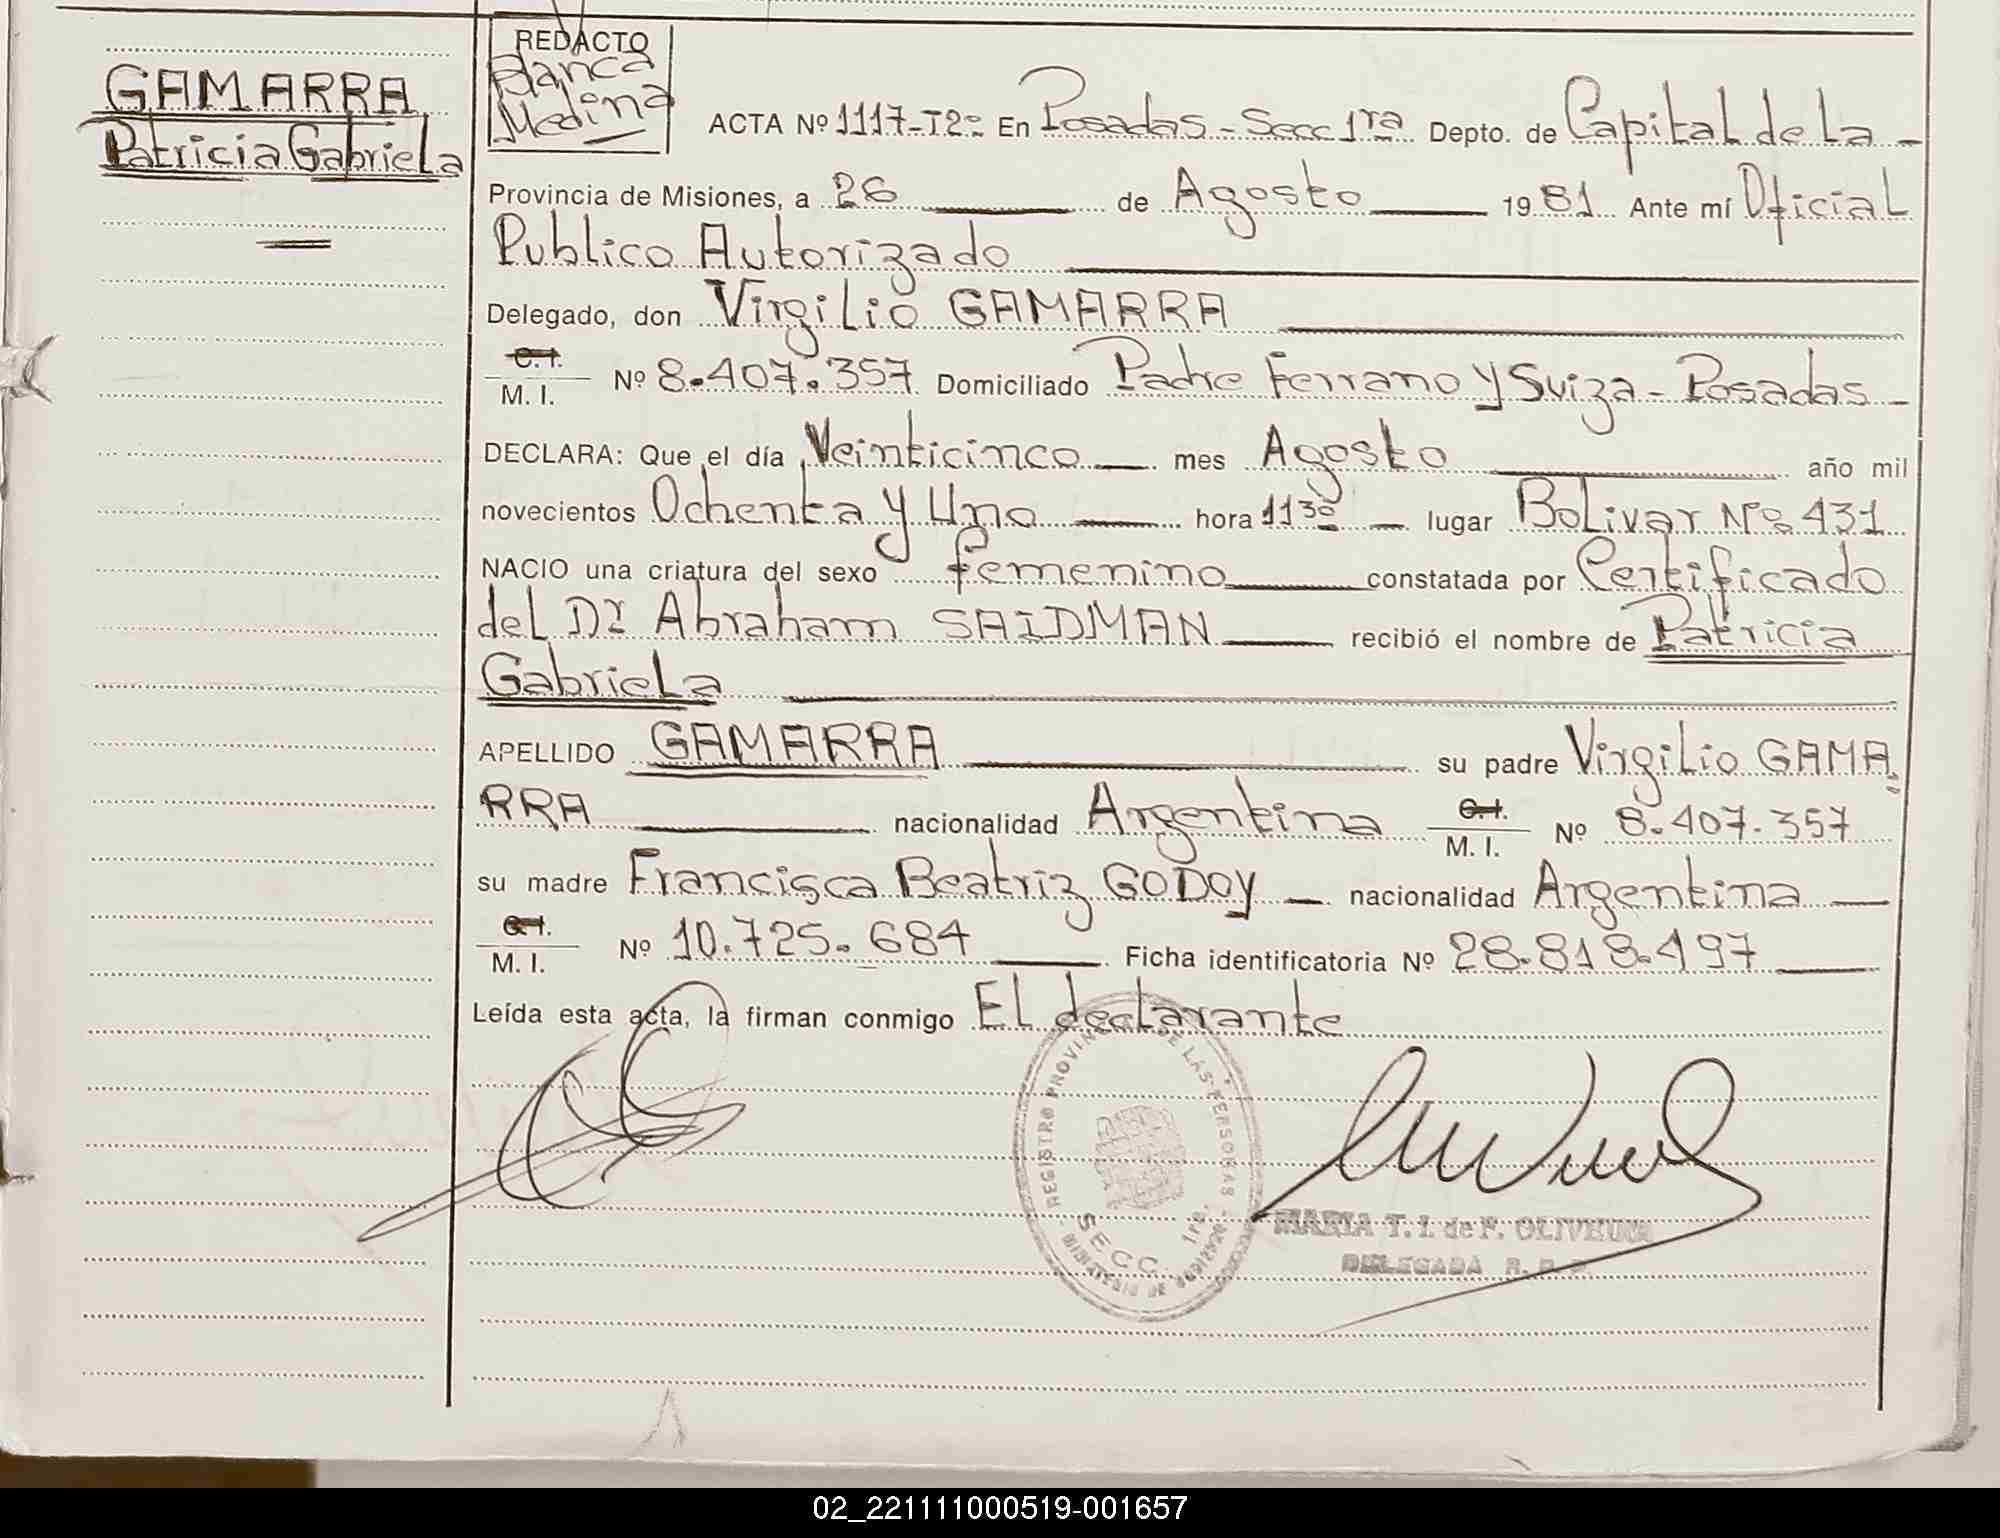 GAMARRA
Patricia Gabriela
REDACTO
Blanca
Medina
ACTA Nº 1117-Tº2 En Posadas - Secc 1ra Depto. de Capital de La -
Provincia de Misiones, a 26 de Agosto 1981 Ante mí Oficial
Publico Autorizado
Delegado, don Virgilio GAMARRA
C.I.
M. I. Nº 8.407.357 Domiciliado Padre Ferrano y Suiza - Posadas -
DECLARA: Que el día Veinticinco mes Agosto año mil
novecientos Ochenta y Uno hora 11 30 lugar Bolivar Nº 431
NACIO una criatura del sexo femenino constatada por Certificado
del Dr Abraham SAIDMAN recibió el nombre de Patricia
Gabriela
APELLIDO GAMARRA su padre Virgilio GAMA
RRA nacionalidad Argentina C.I. M. I. Nº 8.407.357
su madre Francisca Beatriz GODOY nacionalidad Argentina
C.I.
M. I. Nº 10.725.684 Ficha identificatoria Nº 28.818.497
Leída esta acta, la firman conmigo El declarante
REGISTRO PROVINCIAL DE LAS PERSONAS
SECC. 1ra.
MINISTERIO DE GOBIERNO
MARIA T. I. de F. OLIVEIRA
DELEGADA R. P. P.
02_221111000519-001657